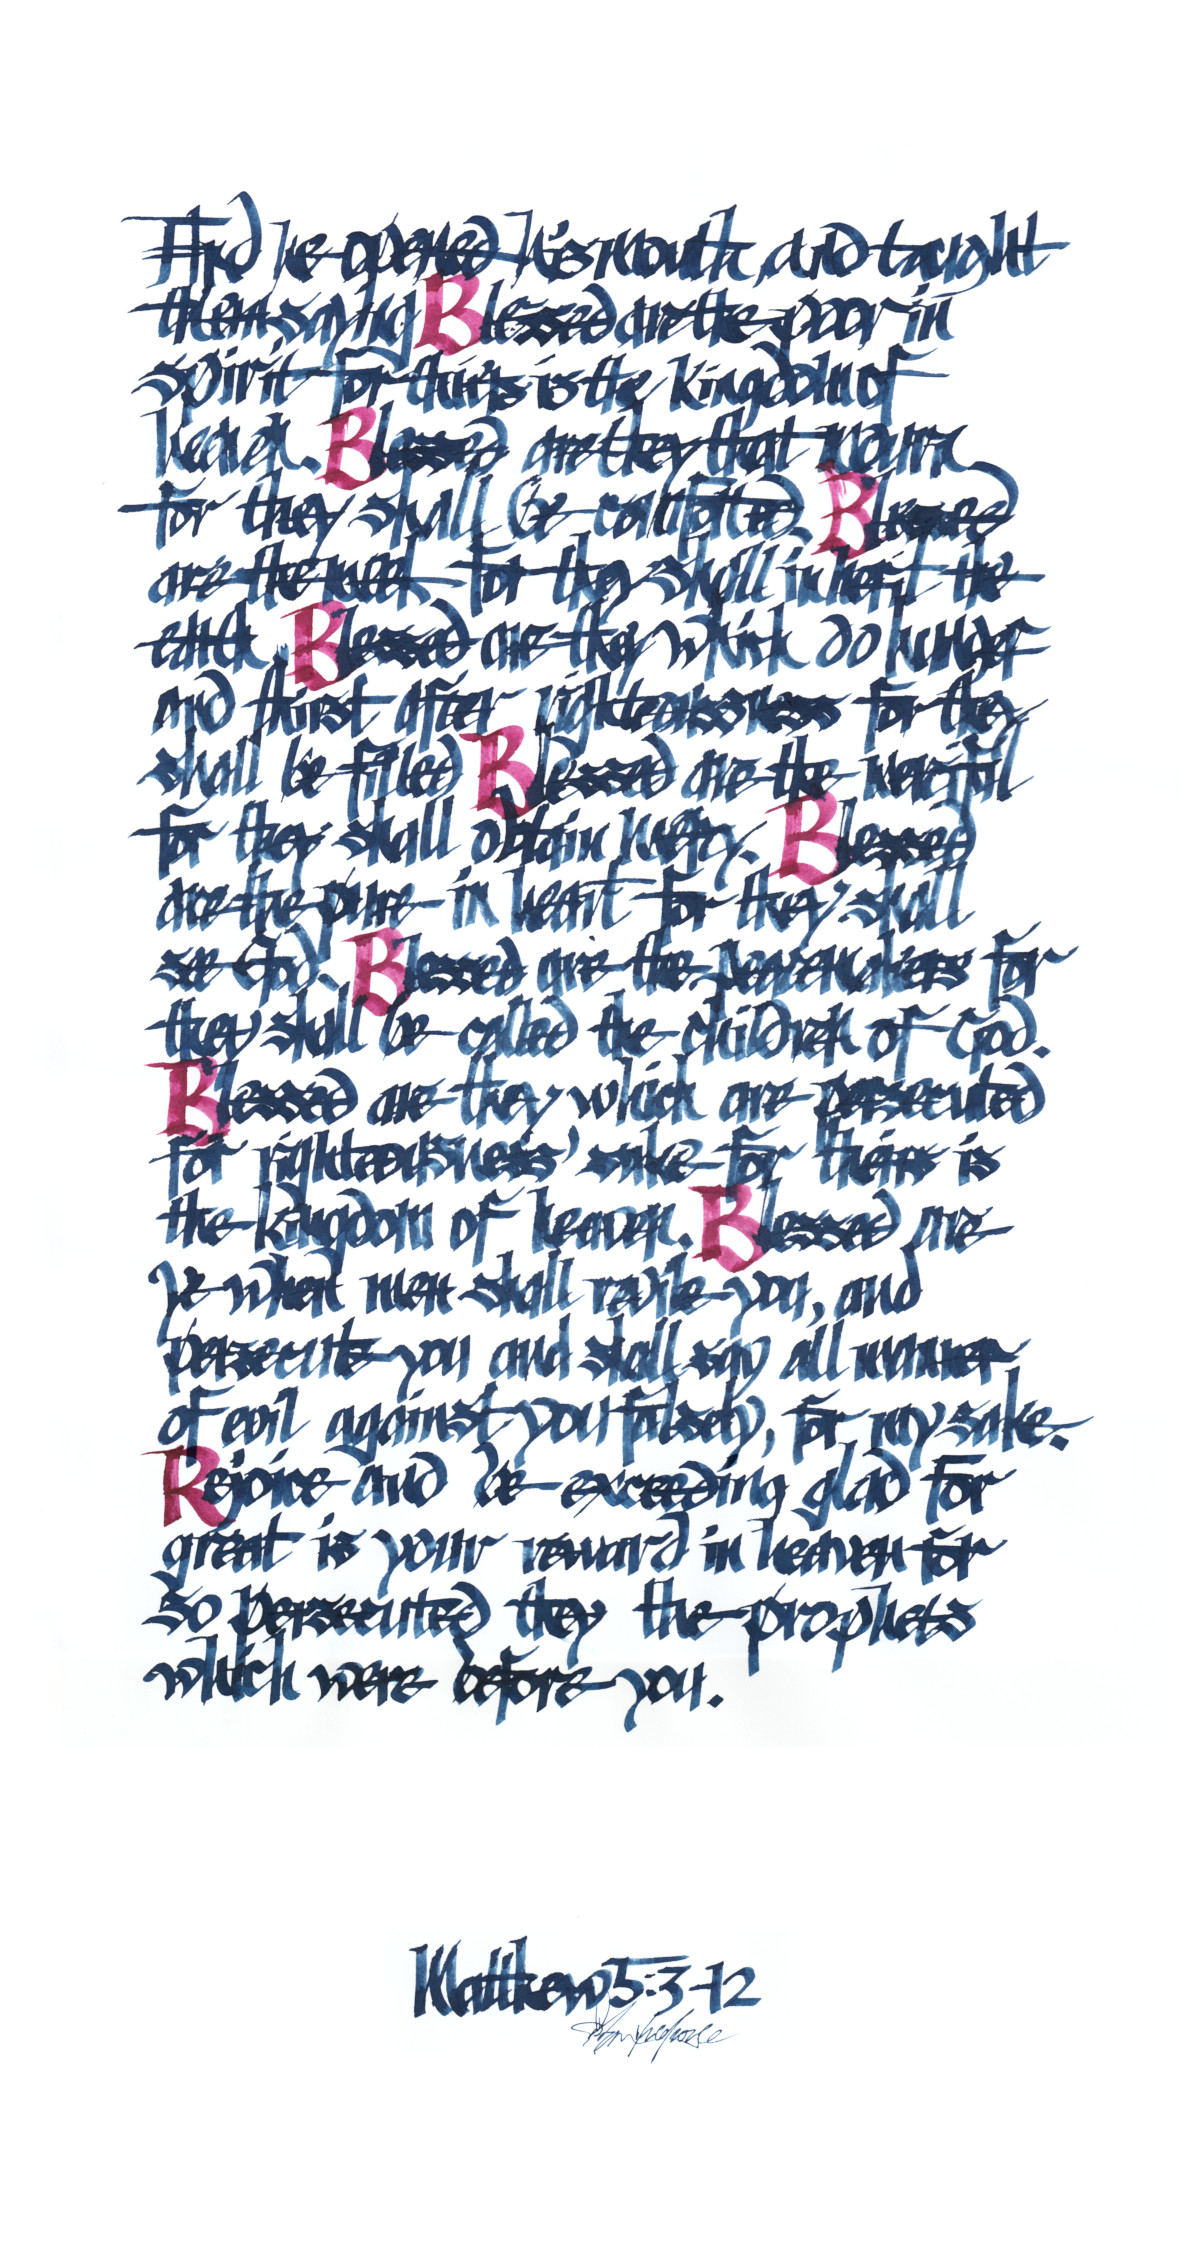 And he opened his mouth, and taught
them saying Blessed are the poor in
spirit for theirs is the kingdom of
heaven. Blessed are they that mourn
for they shall be comforted. Blessed
are the meek for they shall inherit the
earth. Blessed are they which do hunger
and thirst after righteousness for they
shall be filled Blessed are the merciful
for they shall obtain mercy. Blessed
are the pure in heart for they shall
see God. Blessed are the peacemakers for
they shall be called the children of God.
Blessed are they which are persecuted
for righteousness' sake for theirs is
the kingdom of heaven. Blessed are
ye when men shall revile you, and
persecute you and shall say all manner
of evil against you falsely, for my sake.
Rejoice and be exceeding glad for
great is your reward in heaven for
so persecuted they the prophets
which were before you.
Matthew 5:3-12